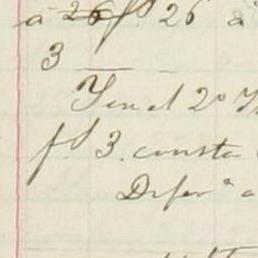 a 26 fs 26 a
3
Yen el 2º
fs 3. consta
Difer.ª a